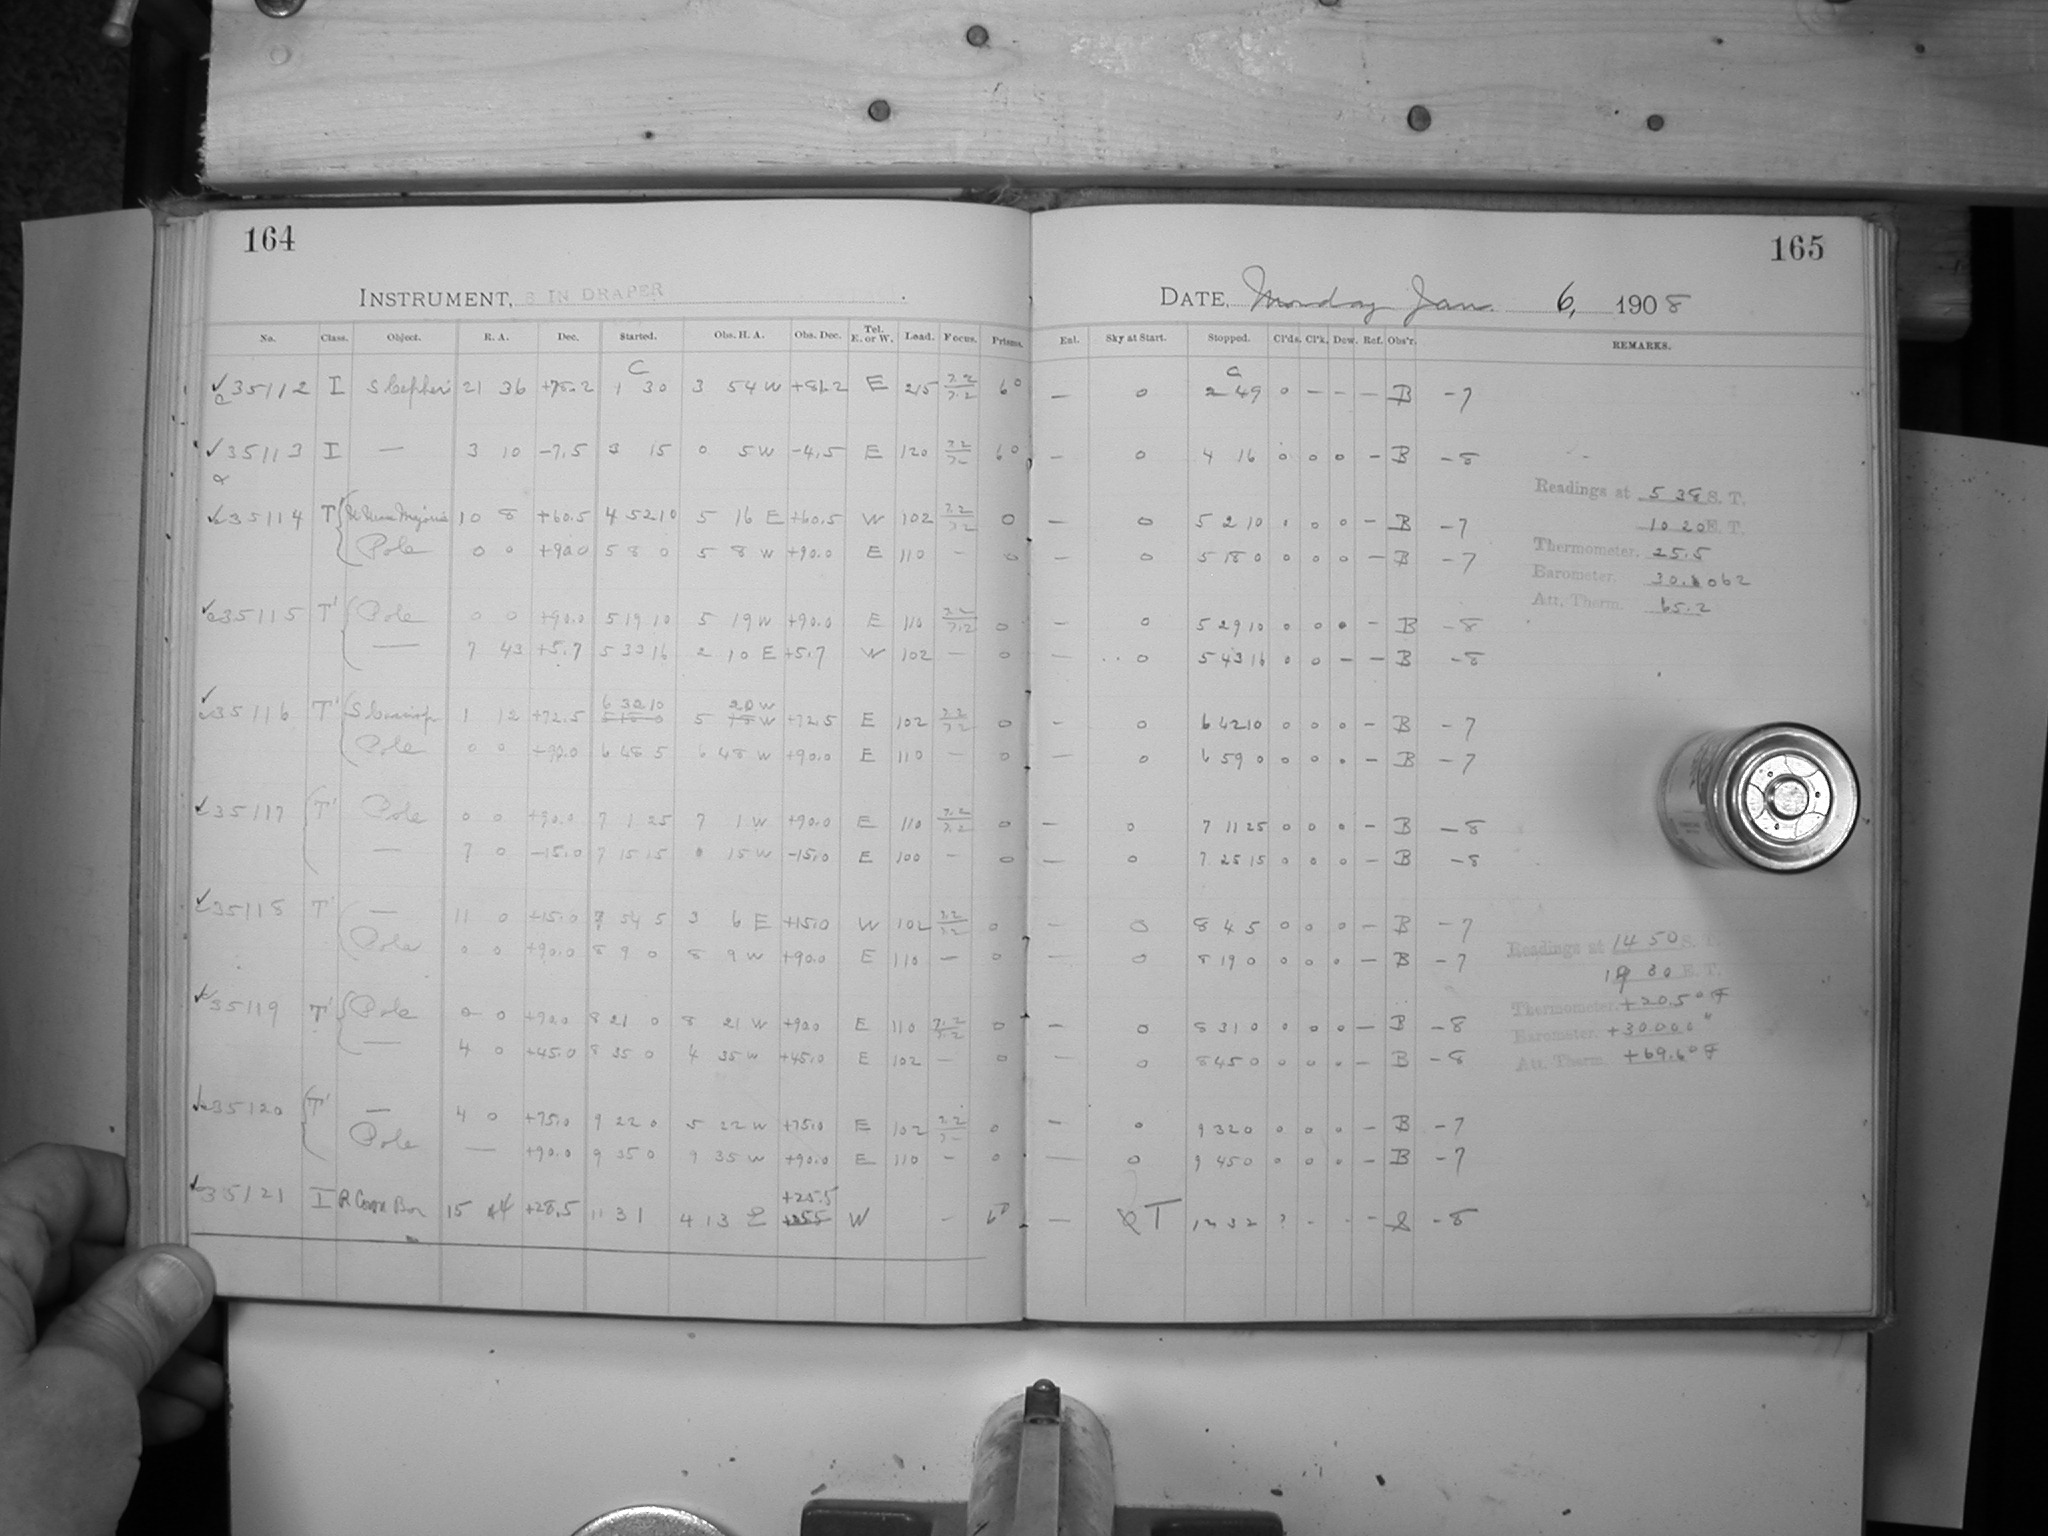 164
165
INSTRUMENT, 8 IN DRAPER
DATE, Monday Jan. 6, 1908
No. Class. Object. R. A. Dec. Started. Obs. H. A. Obs. Dec. Tel. E. or W. Lead. Focus. Prisms. Ext. Sky at Start. Stopped. Cl'ds. Cl'k. Dew. Ref. Obs'r. REMARKS.
C C
35112 I S Cephei 21 36 +78.2 1 30 3 54 W +81.2 E 215 7.2 7.2 60 — 0 2 49 0 — — — B -7
35113 I — 3 10 -7.5 3 15 0 5 W -4.5 E 120 60 — 0 4 16 0 0 0 — B -8
Readings at 5 38 S. T.
35114 T' Ursae Majoris 10 8 +60.5 4 52 10 5 16 E +60.5 W 102 7.2 7.2 0 — 0 5 2 10 0 0 — B -7
10 20 E. T.
Pole 0 0 +90.0 5 8 0 5 8 W +90.0 E 110 — 0 — 0 5 18 0 0 0 0 — B -7
Thermometer. 25.5
Barometer. 30.1062
Att. Therm. 65.2
35115 T' Pole 0 0 +90.0 5 19 10 5 19 W +90.0 E 110 7.2 7.2 0 — 0 5 29 10 0 0 — B -8
— 7 43 +5.7 5 33 16 2 10 E +5.7 W 102 — 0 — 0 5 43 16 0 0 — — B -8
6 32 10 20 W
35116 T' 1 12 +72.5 5 18 0 5 18 W +72.5 E 102 7.2 7.2 0 — 0 6 42 10 0 0 0 — B -7
Pole 0 0 +90.0 6 48 5 6 48 W +90.0 E 110 — 0 — 0 6 59 0 0 0 — B -7
35117 T' Pole 0 0 +90.0 7 1 25 7 1 W +90.0 E 110 7.2 7.2 0 — 0 7 11 25 0 0 — B -8
— 7 0 -15.0 7 15 15 0 15 W -15.0 E 100 — 0 — 0 7 25 15 0 0 0 — B -8
35118 T' — 11 0 +15.0 7 54 5 3 6 E +15.0 W 102 7.2 7.2 0 — 0 8 4 5 0 0 0 — B -7
Readings at 14 50 S. T.
Pole 0 0 +90.0 8 9 0 8 9 W +90.0 E 110 — 0 — 0 8 19 0 0 0 — B -7
19 30 E. T.
Thermometer. +20.5° F
35119 T' Pole 0 0 +90.0 8 21 0 8 21 W +90.0 E 110 7.2 7.2 0 — 0 8 31 0 0 0 0 — B -8
Barometer. +30.000"
— 4 0 +45.0 8 35 0 4 35 W +45.0 E 102 — 0 — 0 8 45 0 0 0 — B -8
Att. Therm. +69.6° F
35120 T' — 4 0 +75.0 9 22 0 5 22 W +75.0 E 102 0 — 0 9 32 0 0 0 — B -7
Pole — +90.0 9 35 0 9 35 W +90.0 E 110 — 0 — 0 9 45 0 0 0 — B -7
+25.5
35121 I R Coron Bor 15 44 +28.5 11 31 4 13 E +25.5 W — 60 — T 12 32 ? - - — -8